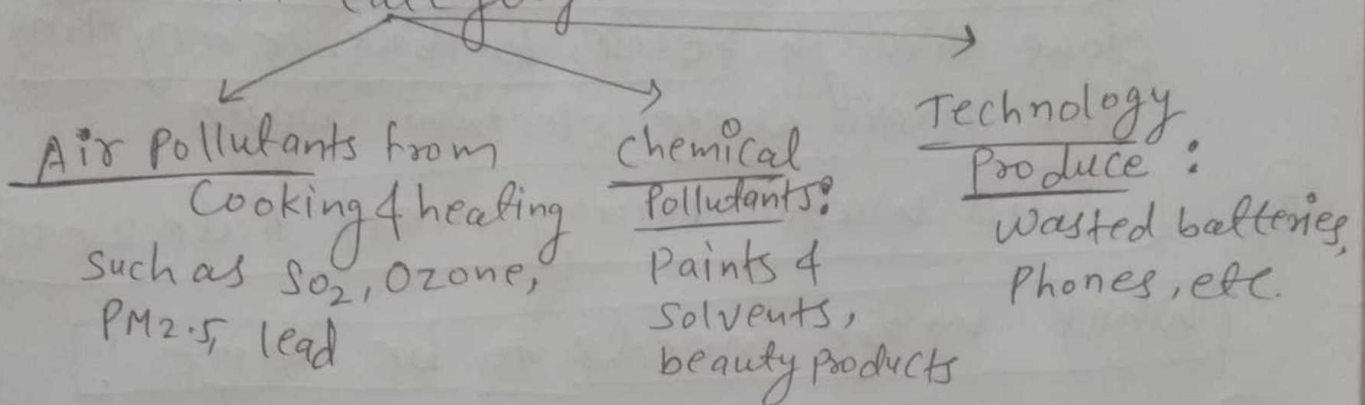 Category
Air Pollutants from
Cooking & heating
such as SO2, Ozone,
PM2.5, lead
Chemical
Pollutants:
Paints &
Solvents,
beauty products
Technology
Produce :
Wasted batteries,
Phones, etc.